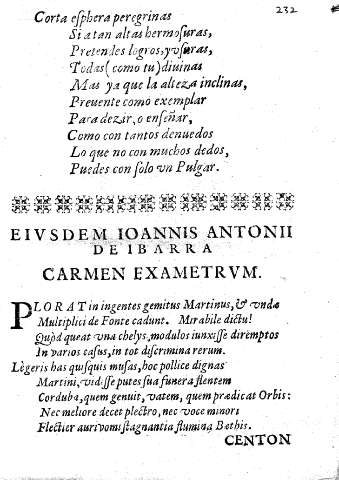 232
Corta esphera peregrinas
Si a tan altas hermosuras,
Pretendes logros, y vsuras,
Todas (como tu) diuinas
Mas ya que la alteza inclinas,
Preuente como exemplar
Para dezir, o enseñar,
Como con tantos denuedos
Lo que no con muchos dedos,
Puedes con solo vn Pulgar.
EIVSDEM IOANNIS ANTONII
DE IBARRA
CARMEN EXAMETRVM.
PLORAT in ingentes gemitus Martinus, & vndæ
Multiplici de Fonte cadunt. Mirabile dictu!
Quòd queat vna chelys, modulos iunxisse diremptos
In varios casus, in tot discrimina rerum.
Lègeris has quisquis musas, hoc pollice dignas
Martini, vidisse putes sua funera flentem
Corduba, quem genuit, vatem, quem prædicat Orbis:
Nec meliore decet plectro, nec voce minori
Flectier aurivomi stagnantia flumina Bæthis.
CENTON